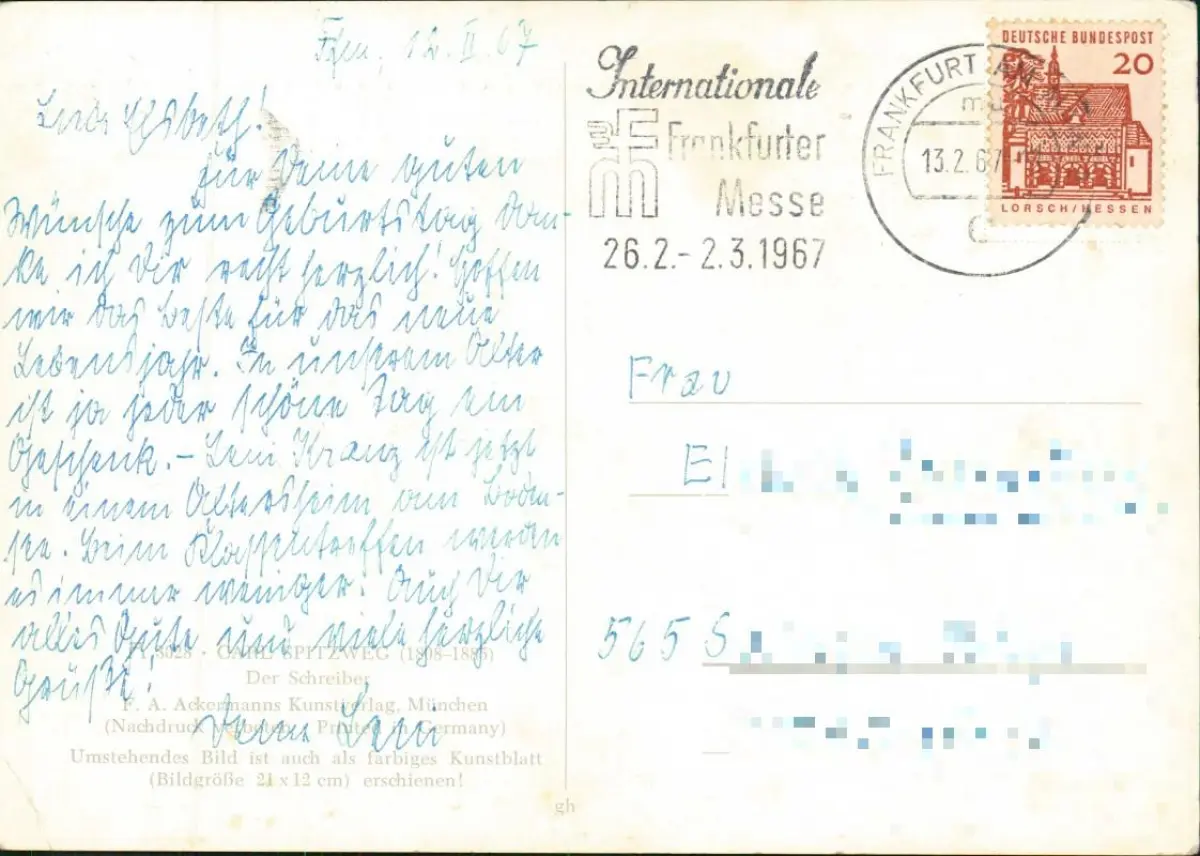 Ffm, 12. II. 67
Liebe Elsbeth!
Für Deine guten
Wünsche zum Geburtstag dan-
ke ich Dir recht herzlich! Hoffen
wir das Beste für das neue
Lebensjahr. In unserem Alter
ist ja jeder schöne Tag ein
Geschenk. – Leni Kranz ist jetzt
in einem Altersheim am Boden-
see. Beim Klassentreffen werden
es immer weniger. Auch Dir
alles Gute und viele herzliche
Grüße!
Deine Leni
8028 · CARL SPITZWEG (1808–1885)
Der Schreiber
F. A. Ackermanns Kunstverlag, München
(Nachdruck verboten – Printed in Germany)
Umstehendes Bild ist auch als farbiges Kunstblatt
(Bildgröße 21 x 12 cm) erschienen!
gh
Internationale
Frankfurter
Messe
26.2.- 2.3.1967
FRANKFURT AM
13.2.67
DEUTSCHE BUNDESPOST
20
LORSCH/HESSEN
Frau
El
565 S